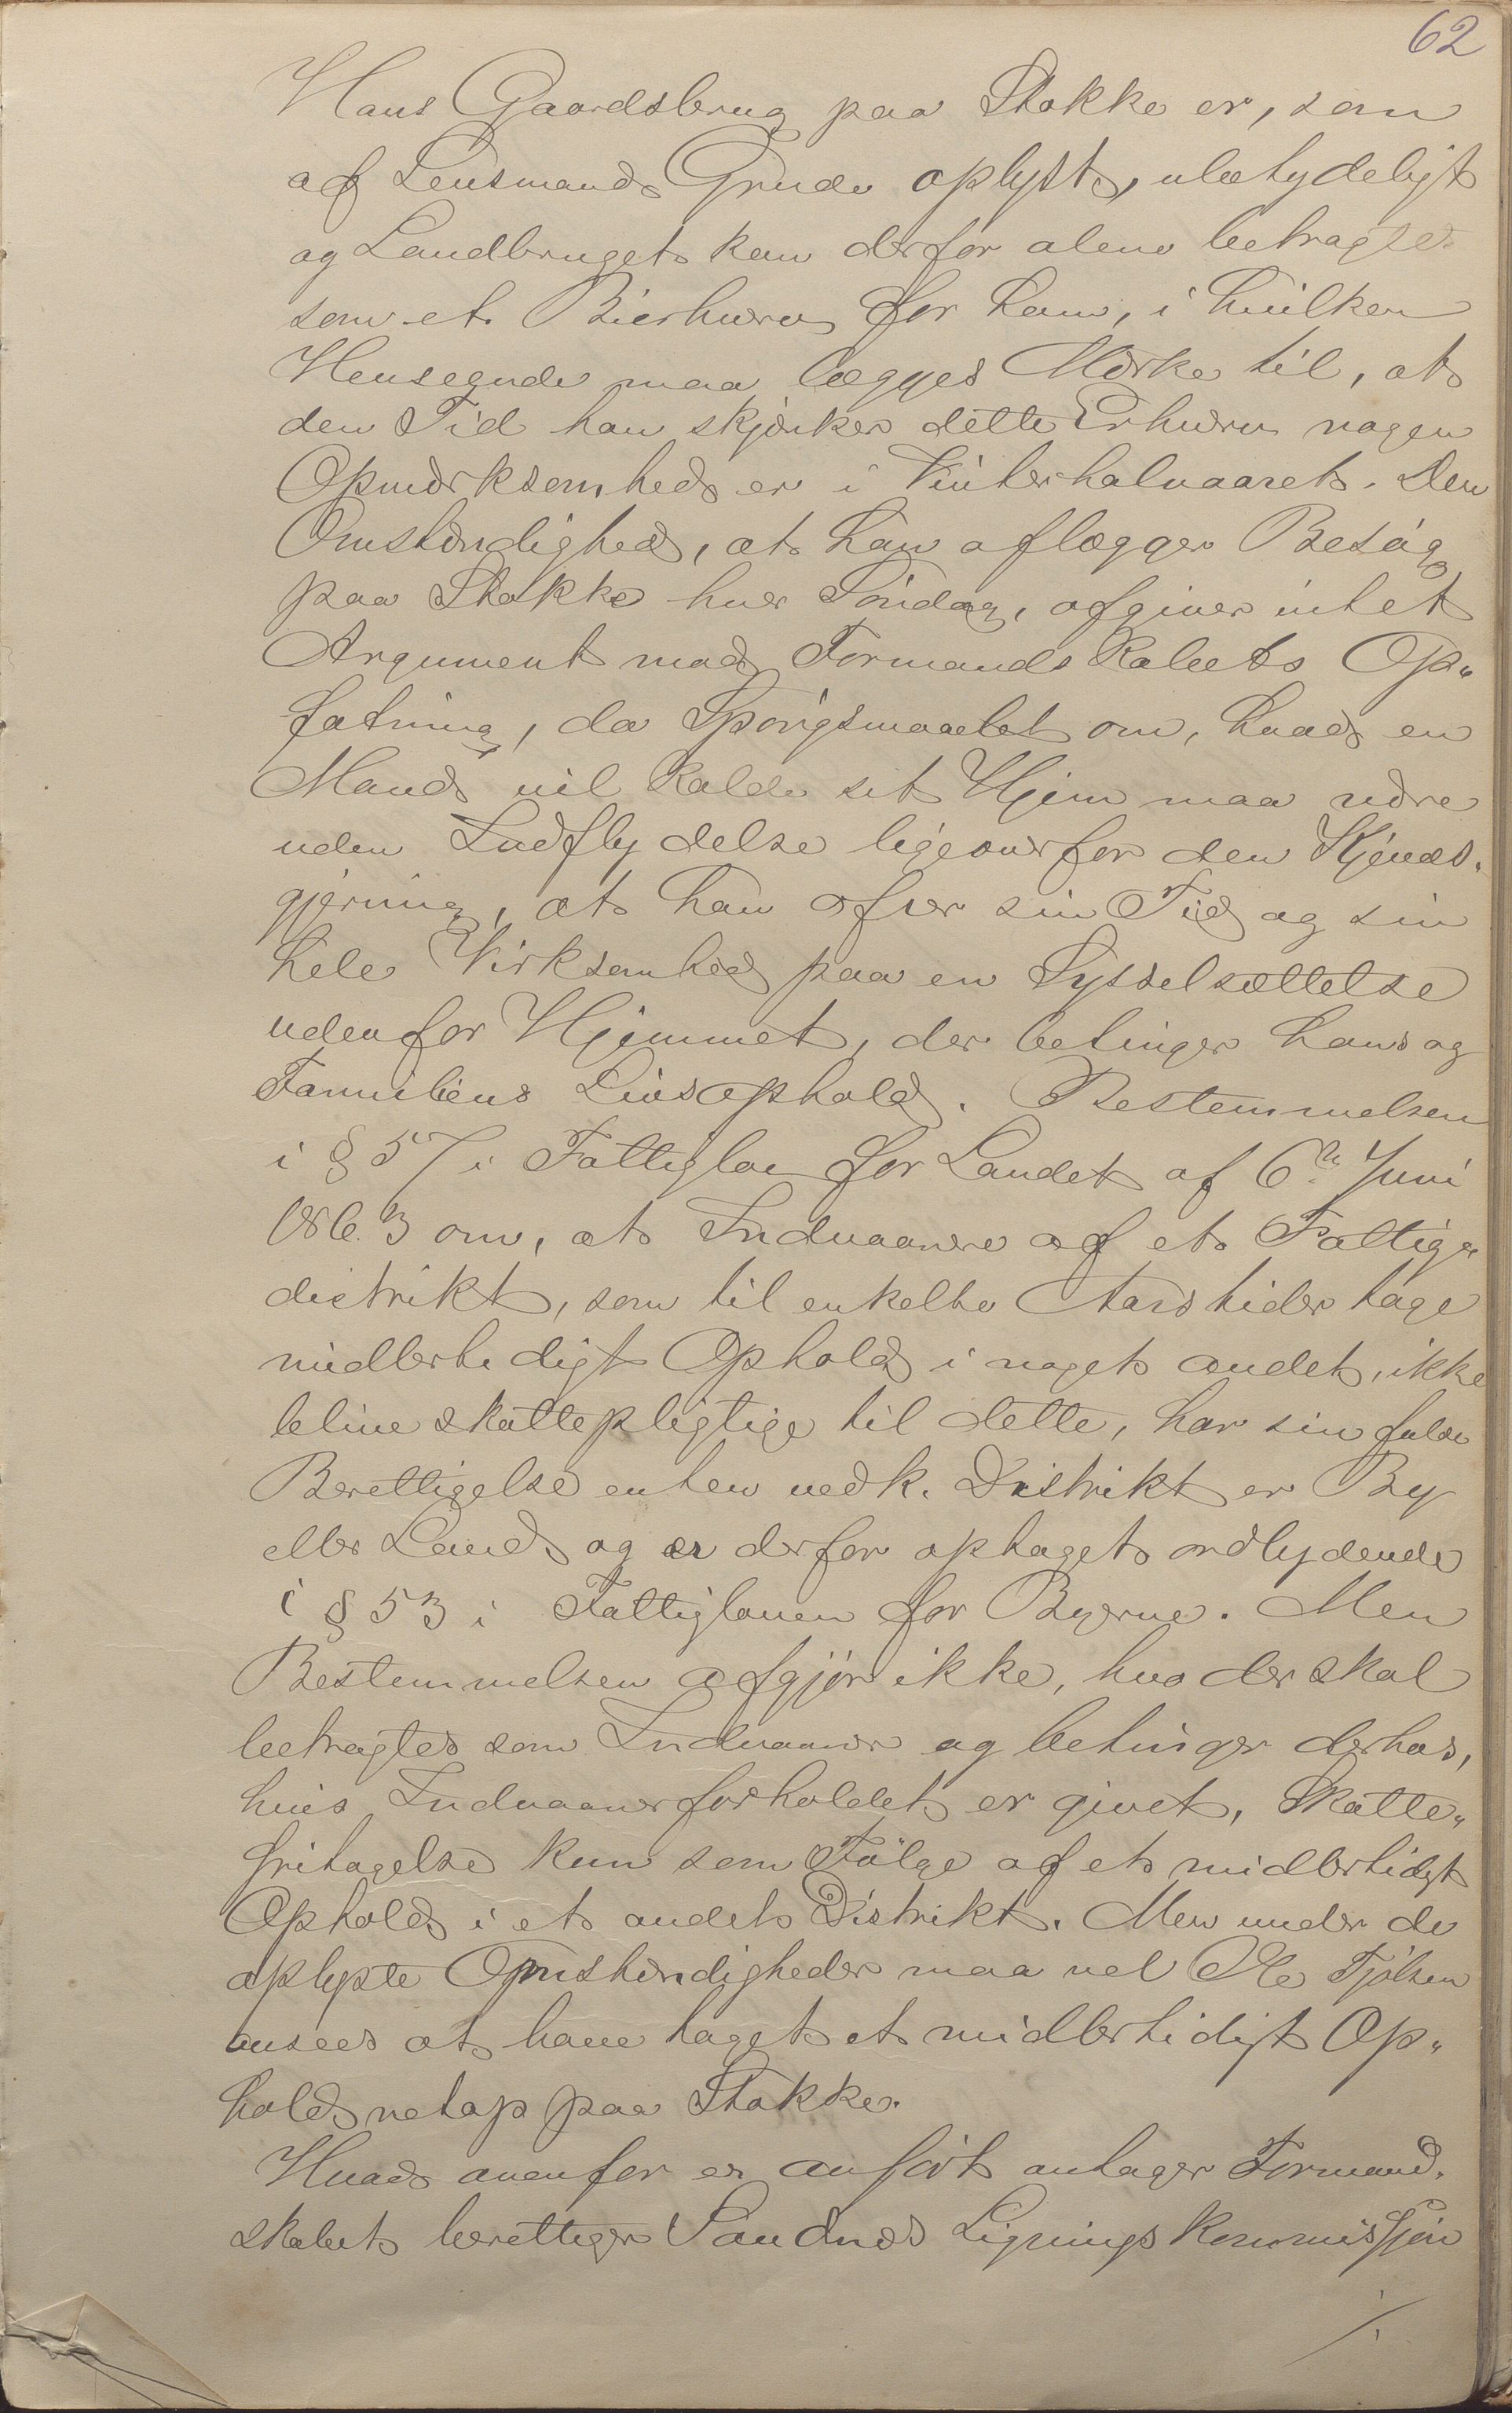 62
Hans Gaardsbrug paa Stokke er, som
af Lensmand Grude oplyst, ubetydeligt
og Landbruget kan derfor alene betragtes
som et Bierhverv for ham, i hvilken
Henseende maa lægges Mærke til, at
den Tid han skjænker dette Erhverv nogen
Opmærksomhed er i Vinterhalvaaret. Den
Omstændighed, at han aflægger Besøg
paa Stokke hver Søndag, afgiver intet
Argument mod Formandskabets Op„
fatning, da Spørgsmaalet om, hvad en
Mand vil kalde sit Hjem maa være
uden Indflydelse ligeoverfor den Kjends„
gjerning, at han ofrer sin Tid og sin
hele Virksomhed paa en Sysselsættelse
udenfor Hjemmet, der betinger hans og
Familiens Livsophold. Bestemmelsen
i § 57 i Fattiglov for Landet af 6te Juni
1863 om, at Indvaanere af et Fattig„
distrikt, som til enkelte Aarstider tage
midlertidigt Ophold i noget andet, ikke
blive skattepligtige til dette, har sin fulde
Berettigelse enten vedk. Distrikt er By
eller Land og er derfor optaget ordlydende
i § 53 i Fattigloven for Byerne. Men
Bestemmelsen afgjør ikke, hvo der skal
betragtes som Indvaaner og betinger derhos,
hvis Indvaanerforholdet er givet, Skatte„
fritagelse kun som Følge af et midlertidigt
Ophold i et andet Distrikt. Men under de
oplyste Omstændigheder maa vel Ole Tjølsen
ansees at have taget et midlertidigt Op„
hold netop paa Stokke.
Hvad ovenfor er anført antager Formand„
skabet berettiger Sandnæs Ligningskommissjon